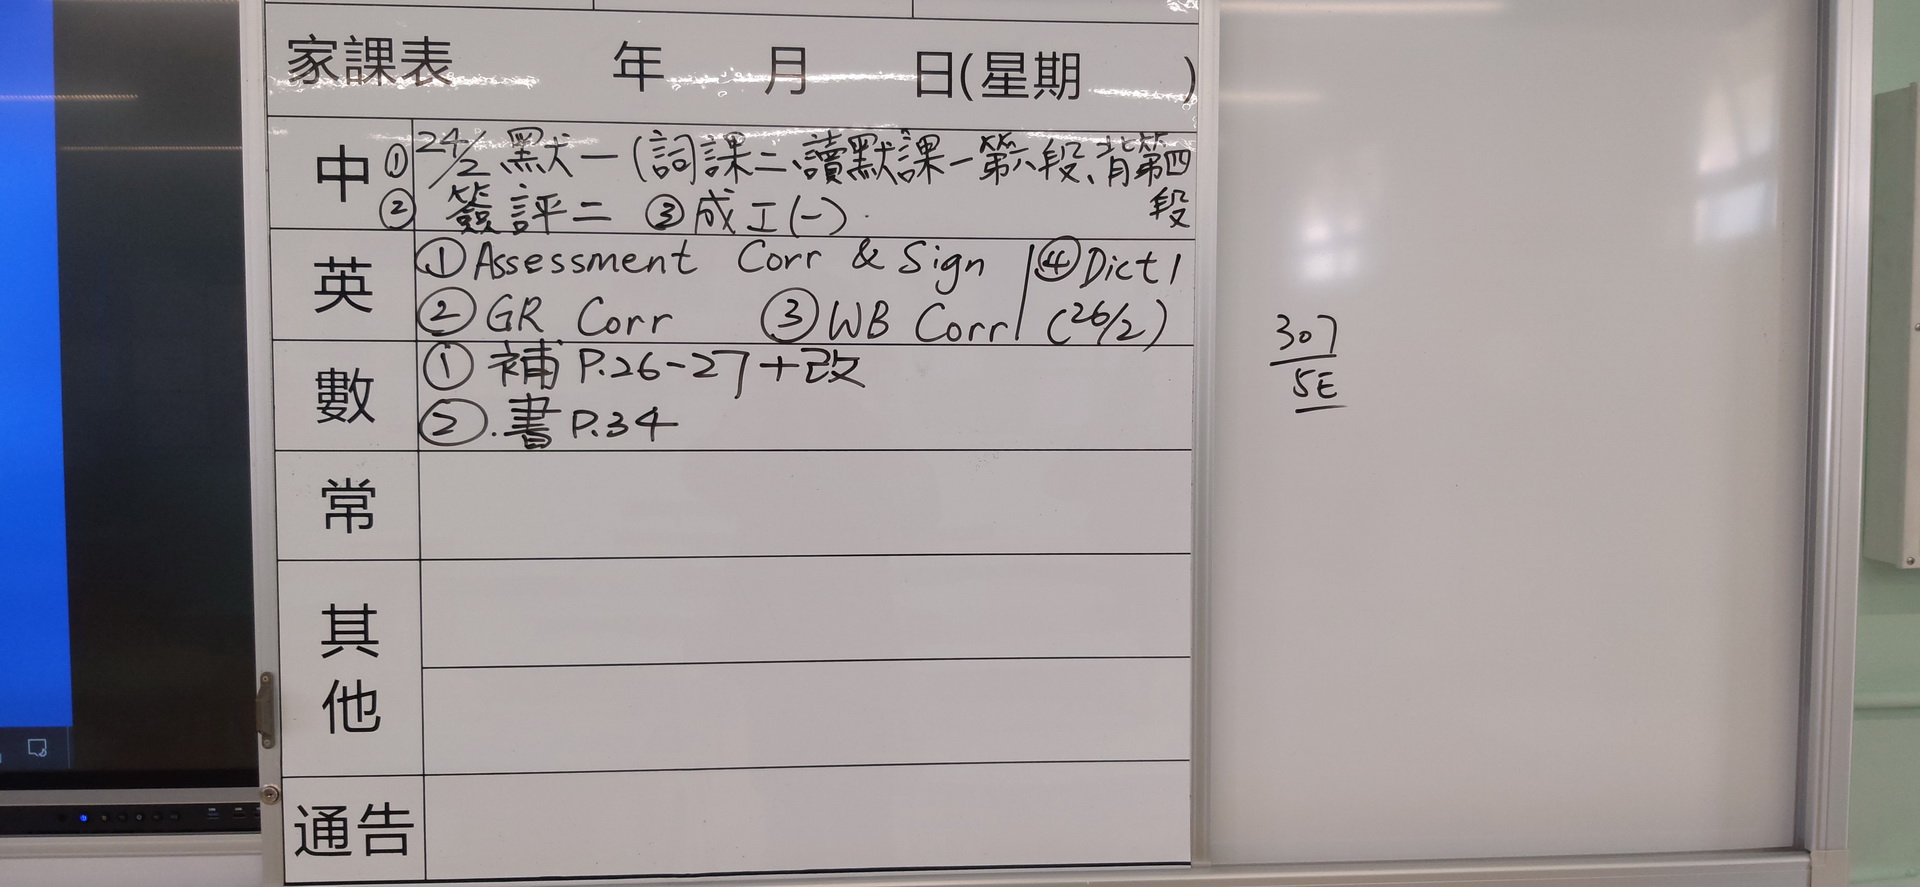 家課表 年 月 日(星期 )
中 ① 24/2 默一(詞課二、讀默課一第六段、背第四段
② 簽評二 ③成工(一).
英 ①Assessment Corr & Sign ④Dict 1
②GR Corr ③WB Corr (26/2)
數 ① 補 P.26-27+改
②.書 P.34
常
其他
通告
307
5E